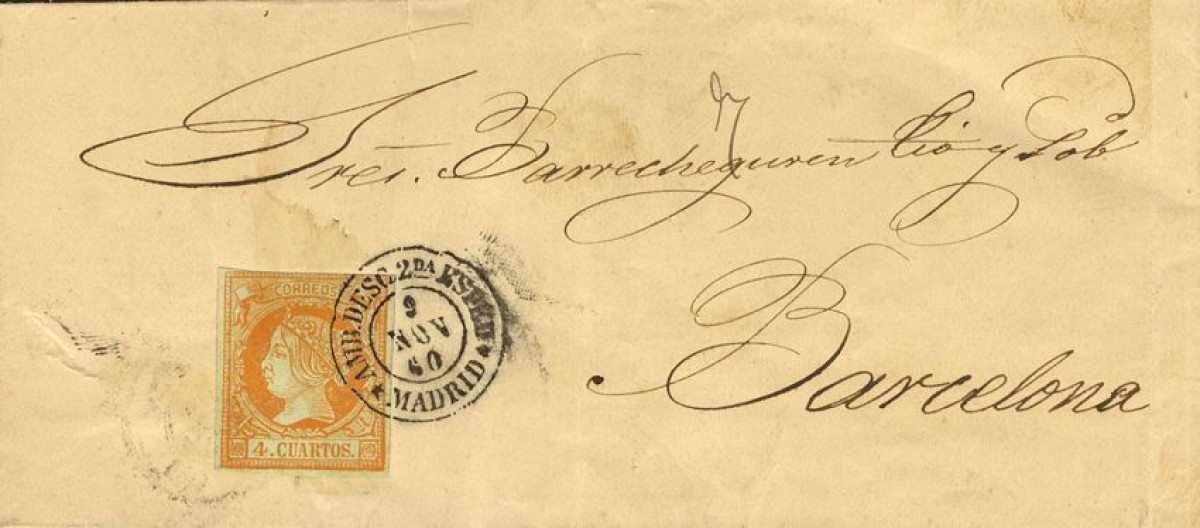 Sres. Barrecheguren Tio y Sob
Barcelona
CORREOS
4. CUARTOS.
AMB. DESC. 2DA
9
NOV
60
MADRID